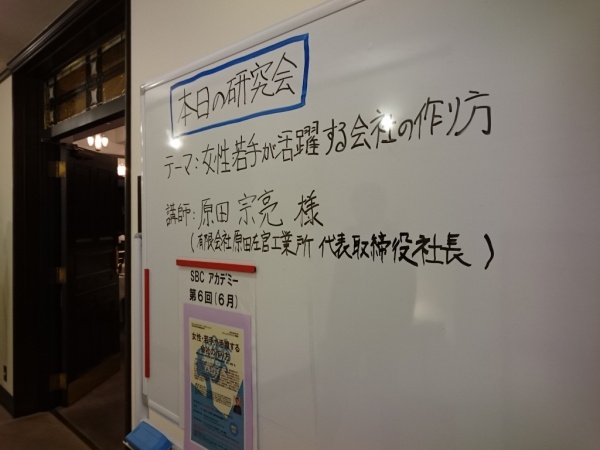 本日の研究会
テーマ:女性若手が活躍する会社の作り方
講師:原田 宗亮 様
(有限会社原田左官工業所 代表取締役社長)
SBC アカデミー
第6回(6月)
女性・若手が活躍する
会社の作り方